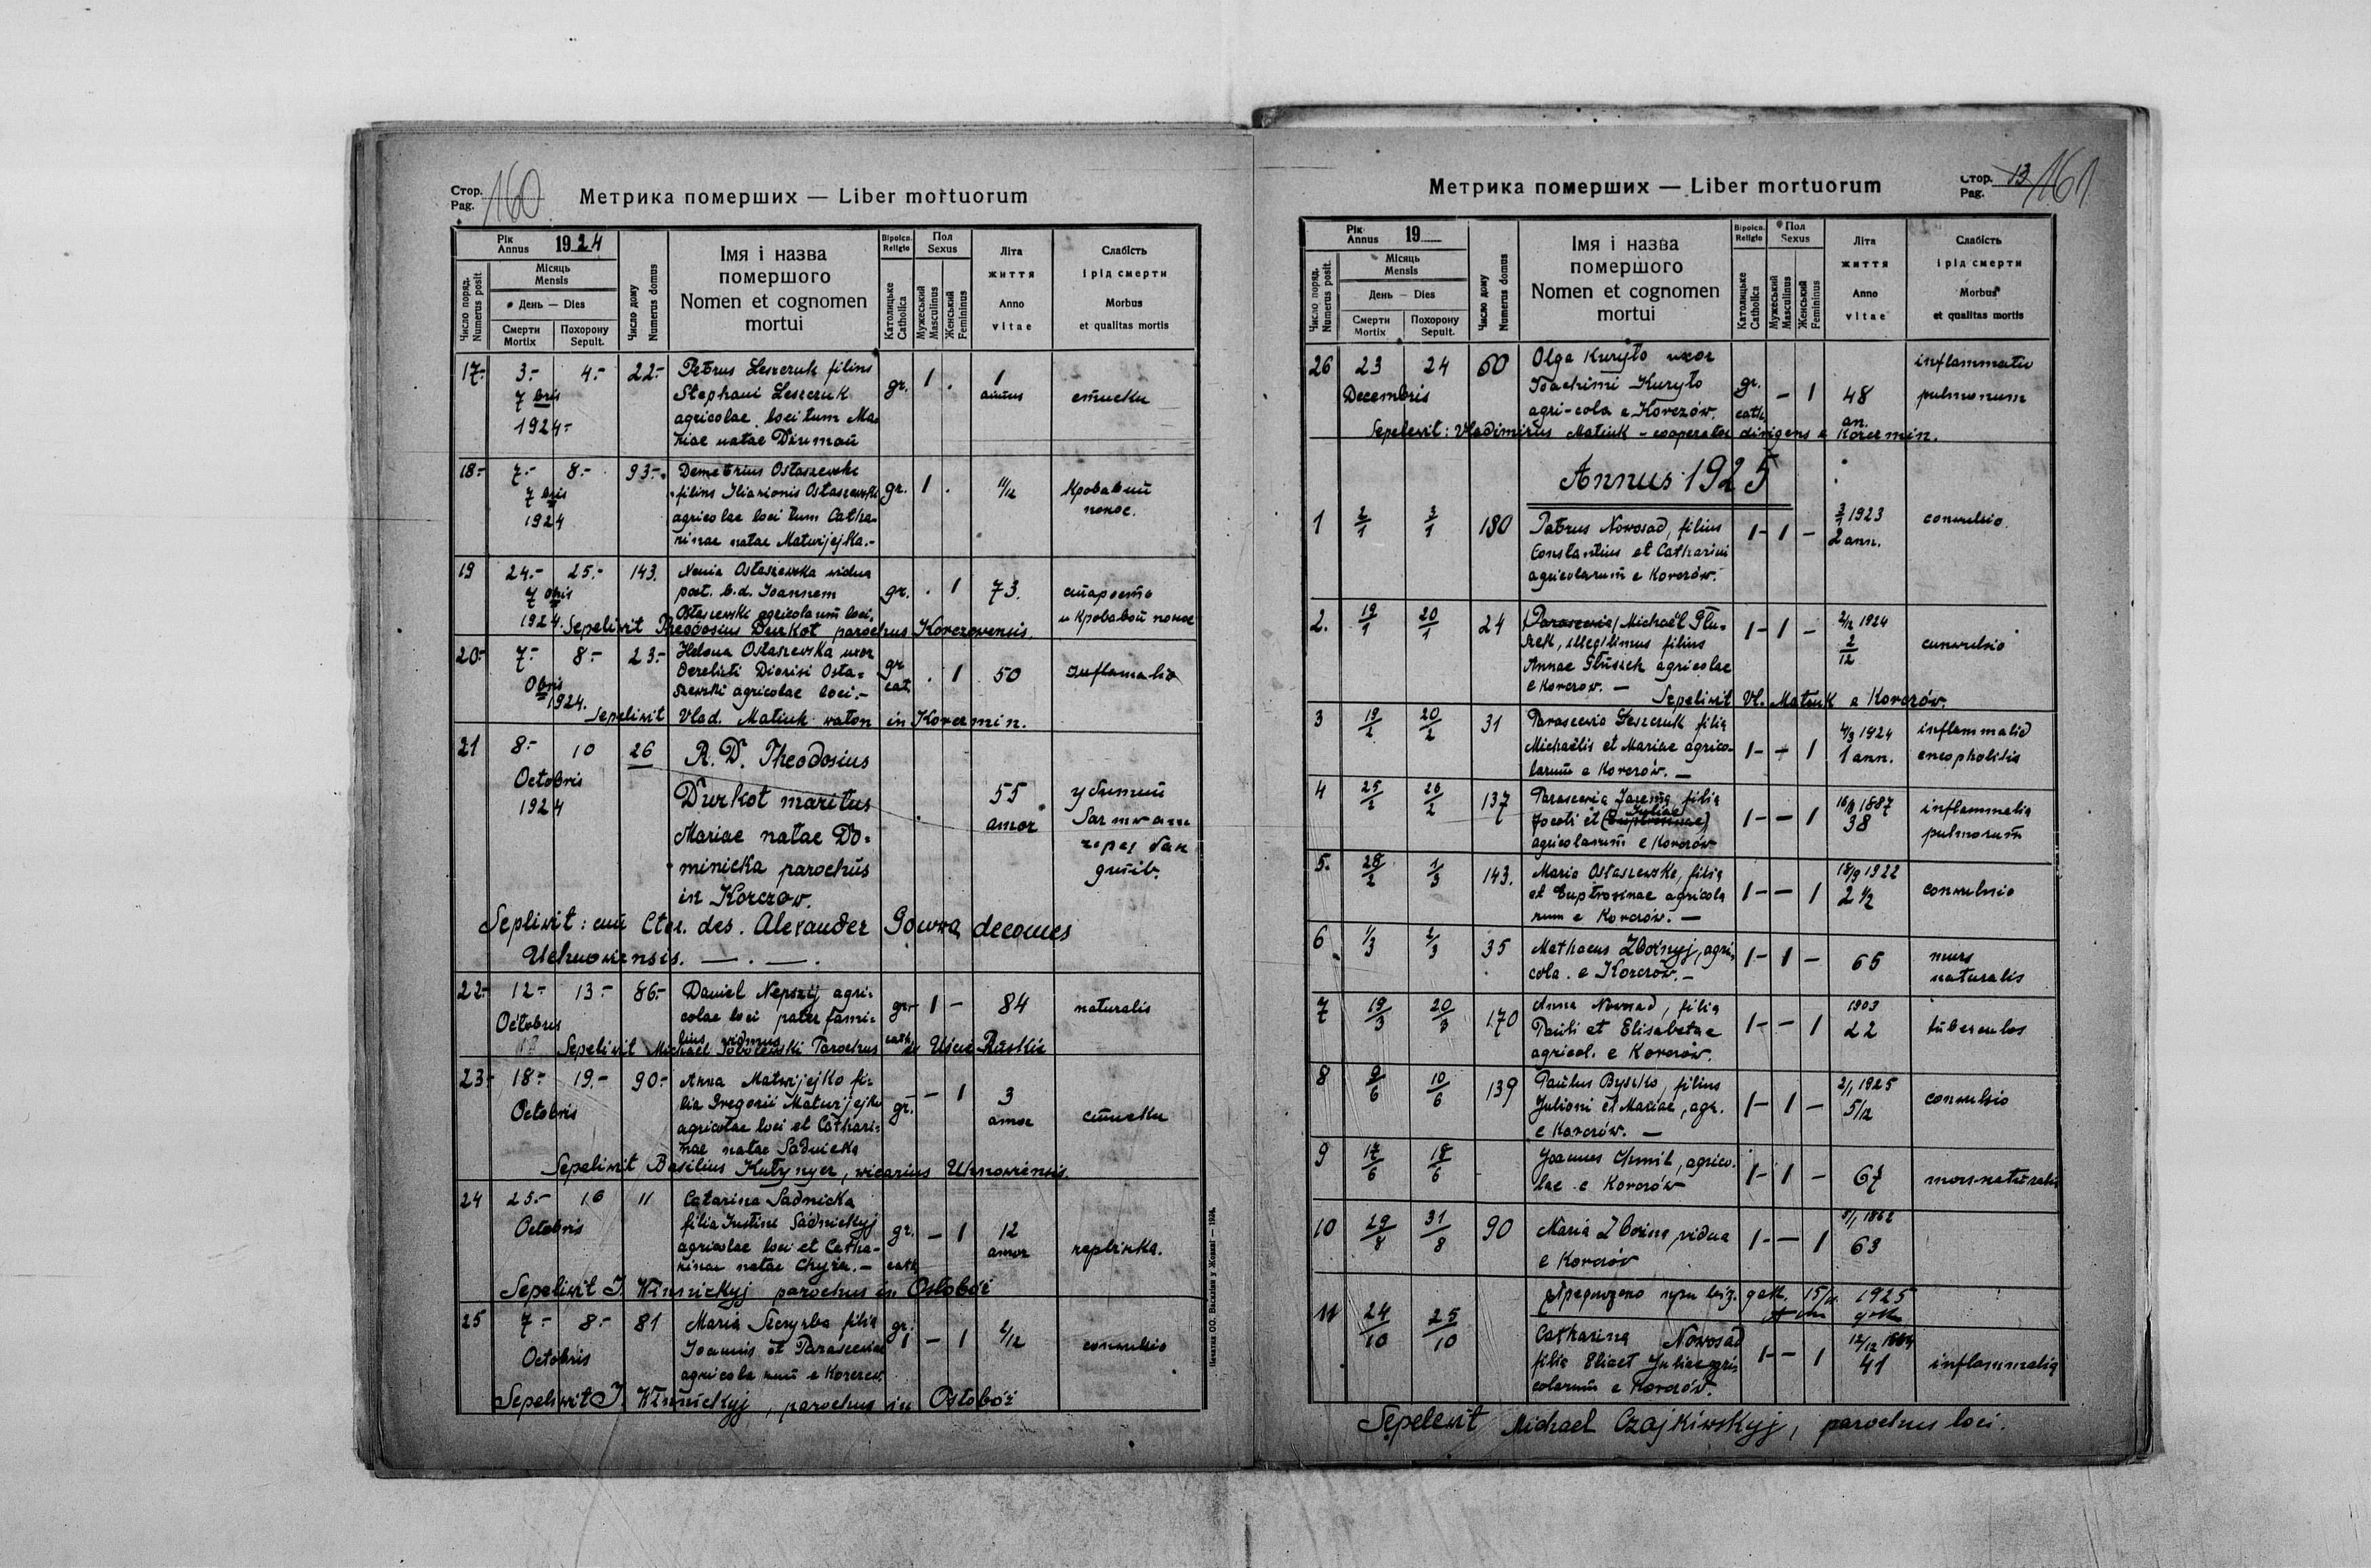 Стор.
Pag. 160
Метрика померших — Liber mortuorum
Рік
Annus 1924
Число поряд.
Numerus posit.
Місяць
Mensis
День — Dies
Смерти
Mortix
Похорону
Sepult.
Число дому
Numerus domus
Імя і назва
помершого
Nomen et cognomen
mortui
Віроісп.
Religio
Католицьке
Catholica
Пол
Sexus
Мужеський
Masculinus
Женський
Femininus
Літа
життя
Anno
vitae
Слабість
і рід смерти
Morbus
et qualitas mortis
17.- 3.- 4.- 22.- Petrus Leszczuk filius
7 bris Stephani Leszczuk gr. 1 . 1 annus
1924.- agricolae loci tum Ma-
riae natae
18.- 7.- 8.- 93.- Demetrius Ostaszewski
7 bris filius Ilarionis Ostaszewski gr. 1 . 11/12 Кровавий
1924 agricolae loci tum Catha- понос.
rinae natae Matwijejka.-
19 24.- 25.- 143. Ostaszewska vidua
7 bris post. b.d. Joannem gr. . 1 73. старость
1924. Ostaszewski agricolarum loci. и кровавой понос
Sepelivit Theodosius Durkot parochus Korczoviensis
20.- 7.- 8.- 23.- Helena Ostaszewska uxor
derelicti Dionisi Osta- gr. cat. . 1 50
8bris szewski agricolae loci.-
1924.
Sepelivit Vlad. Matiuk in Korczmin.
21 8.- 10 26 R. D. Theodosius
Octobris Durkot maritus 55 убитий
1924 Mariae natae Do- annor
minicka parochus через бан
in Korczow. дитів.
Sepelivit: cum Alexander decanus
Uchnoviensis. — . — .
22.- 12.- 13.- 86.- Daniel agri-
Octobris colae loci pater fami- gr. 1 - 84 naturalis
lias viduus cath.
Sepelivit Michael Sobolewski Parochus Uście Ruskie
23.- 18.- 19.- 90.- Anna Matwijejko fi-
Octobris lia Gregorii Matwijejko gr. - 1 3
agricolae loci et Cathari- annor
nae natae Sadnicka
Sepelivit Basilius Kutynyer, vicarius Uhnoviensis.
24 25.- 16 11 Catarina Sadnicka
Octobris filia Justini Sadnickyj gr. - 1 12
agricolae loci et Catha- annor червінка.
rinae natae Chyża.- cath.
Sepelivit J. Winnickyj parochus in Ostobóż
25 7.- 8.- 81 Maria Szczyrba filia gr.
Octobris Joannis et Parasceviae 1 - 1 2/12 convulsio
agricola rum e Korczow.
Sepelivit J. Winnickyj, parochus in Ostobóż
Печатня ОО. Василіян у Жовкві — 1924.
Метрика померших — Liber mortuorum
Стор.
Pag. 13 161
Рік
Annus 19
Число поряд.
Numerus posit.
Місяць
Mensis
День — Dies
Смерти
Mortix
Похорону
Sepult.
Число дому
Numerus domus
Імя і назва
помершого
Nomen et cognomen
mortui
Віроісп.
Religio
Католицьке
Catholica
Пол
Sexus
Мужеський
Masculinus
Женський
Femininus
Літа
життя
Anno
vitae
Слабість
і рід смерти
Morbus
et qualitas mortis
26 23 24 60 Olga Kuryło uxor inflammatio
Decembris Joachimi Kuryło gr. - 1 48 pulmonum
agri-cola e Korczów. cath an.
Sepelevit: Vladimirus Matiuk - cooperator dirigens e Korczmin.
Annus 1925
1 2/1 3/1 180 Petrus Nowosad, filius 1- 1 - 3/1 1923 convulsio.
Constantius et Catharini 2 ann.
agricolarum e Korczów.
2. 19/1 20/1 24 (Parascevia) Michaël Głu- 1- 1 - 2/12 1924
szek, illegitimus filius 2/12 convulsio
Annae Głuszek agricolae
e Korczow. —
Sepelivit Vl. Matiuk e Korczów.
3 19/2 20/2 31 Parascevia Leszczuk filia 4/3 1924 inflammatio
Michaëlis et Mariae agrico- 1- + 1 1 ann. encephalitis
larum e Korczów. —
4 25/2 26/2 137 Parascevia Jarema filia 16/8 1887 inflammatio
et (Euphrosinae) Juliae 1- - 1 38 pulmonum
agricolarum e Korczów
5. 28/2 1/3 143. Maria Ostaszewska, filia 18/9 1922
et Euphrosinae agricola 1- - 1 2 1/2 convulsio
rum e Korczów. —
6 1/3 2/3 35 Mathaeus Zbornyj, agri- 1- 1 - 65 mors
cola e Korczów.- naturalis
7 19/3 20/3 170 Anna Nowosad, filia 1903
Pauli et Elisabetae 1- - 1 22 tuberculos
agricol. e Korczów.
8 9/6 10/6 139 Paulus Byszko, filius 2/1 1925
Julioni et Mariae, agr. 1- 1 - 5/12 convulsio
e Korczów. —
9 17/6 18/6 Joannes Chmil, agrico- 1- 1 - 67 mors naturalis
lae e Korczów
10 29/8 31/8 90 Maria vidua 1- - 1 1862
e Korczów 63
при віз. дек. 15/ 1925
11 24/10 25/10 Catharina Nowosad 12/12 1884
filia Eliae et Juliae agri- 1- - 1 41 inflammatio
colarum e Korczów.
Sepelevit Michael Czajkiwskyj, parochus loci.